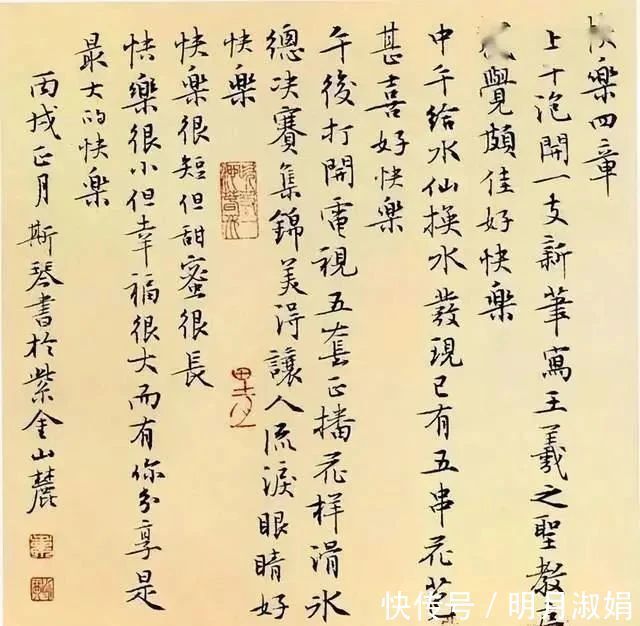 快樂四章
上午泡開一支新筆寫王羲之聖教
覺頗佳好快樂
中午給水仙換水發現已有五串花苞
甚喜好快樂
午後打開電視五套正播花样滑冰
總决賽集錦美得讓人流淚眼睛好
快樂
快樂很短但甜蜜很長
快樂很小但幸福很大而有你分享是
最大的快樂
丙戌正月斯琴書於紫金山麓
快传号 / 明月淑娟